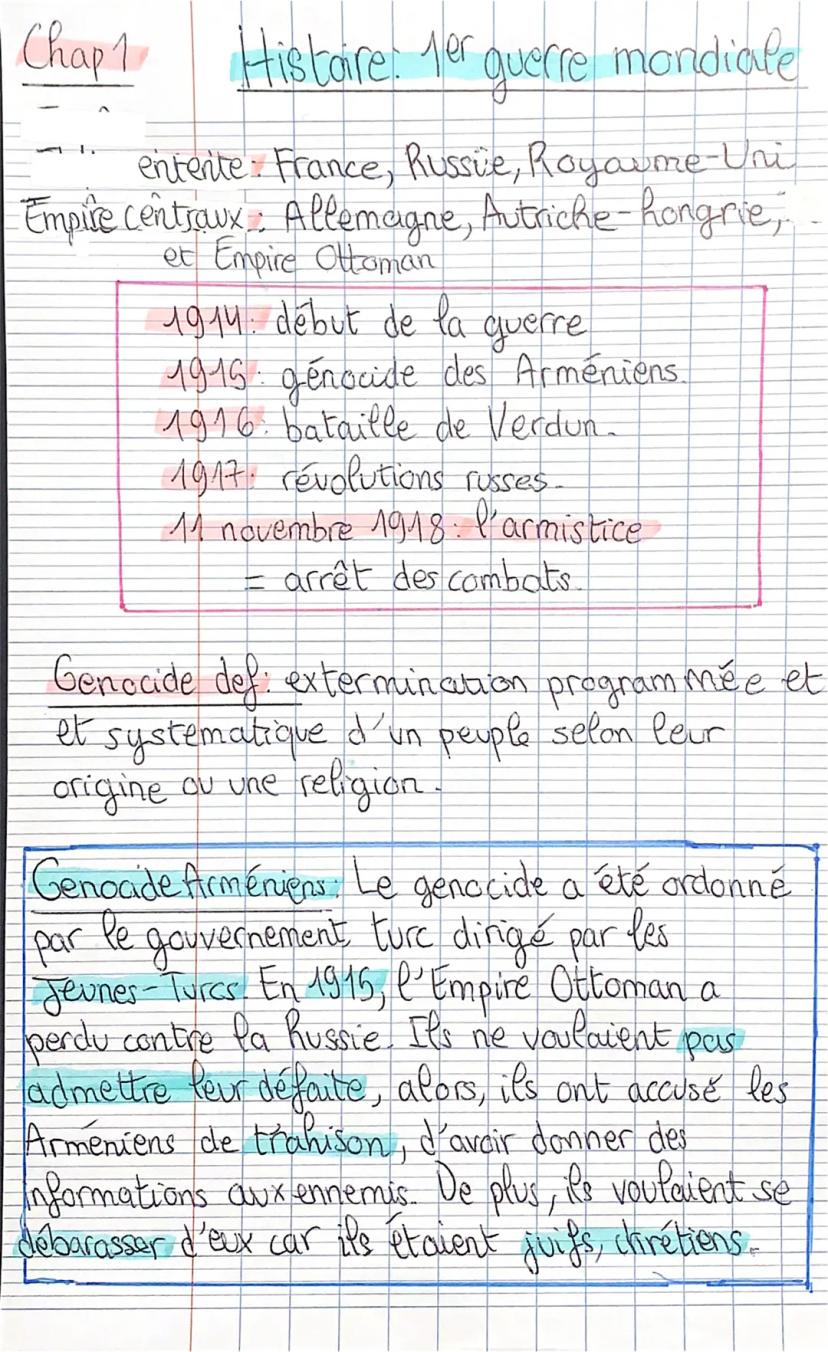 Chap 1
Histoire: 1er guerre mondiale
entente: France, Russie, Royaume-Uni
Empire centraux: Allemagne, Autriche-hongrie,
et Empire Ottoman
1914: début de la guerre
1915: génocide des Arméniens.
1916: bataille de Verdun.
1917: révolutions russes.
11 novembre 1918: l'armistice
= arrêt des combats.
Genocide def: extermination programmée et
et systematique d'un peuple selon leur
origine ou une religion.
Genocide Arméniens: Le genocide a été ordonné
par le gouvernement turc dirigé par les
Jeunes-Turcs. En 1915, l'Empire Ottoman a
perdu contre la Russie. Ils ne voulaient pas
admettre leur défaite, alors, ils ont accusé les
Arméniens de trahison, d'avoir donner des
informations aux ennemis. De plus, ils voulaient se
débarasser d'eux car ils étaient juifs, chrétiens.